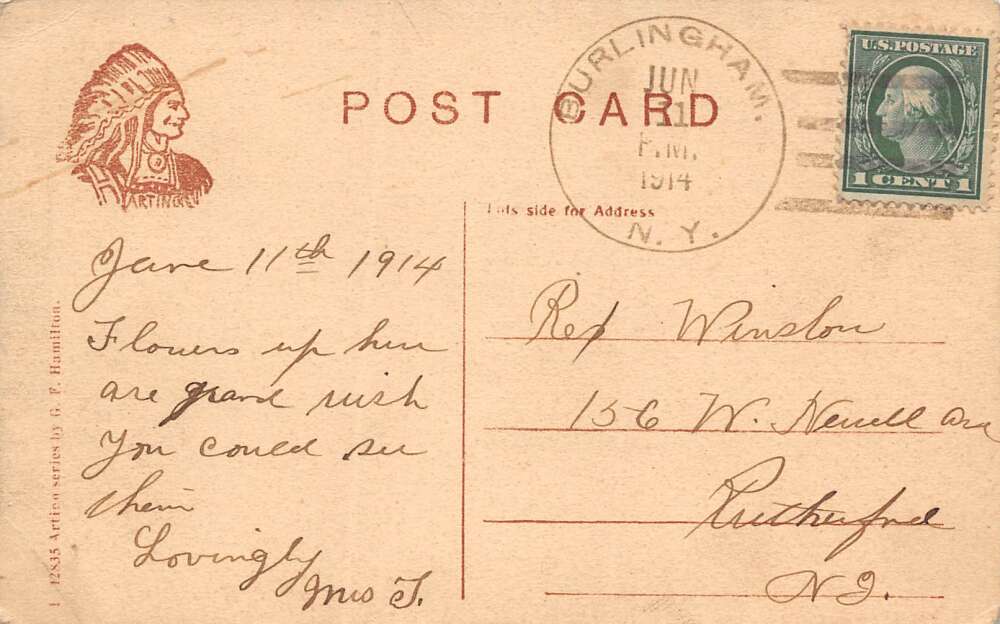 POST CARD
BURLINGHAM.
JUN
11
P.M.
1914
N. Y.
U.S. POSTAGE
1 CENT 1
ARTINO
This side for Address
June 11th 1914
Flowers up here
are grand wish
You could see
them
Lovingly
Mrs T.
Rex Winslow
156 W. Newell Ave
Rutherford
N J.
12835 Artino series by G. F. Hamilton.